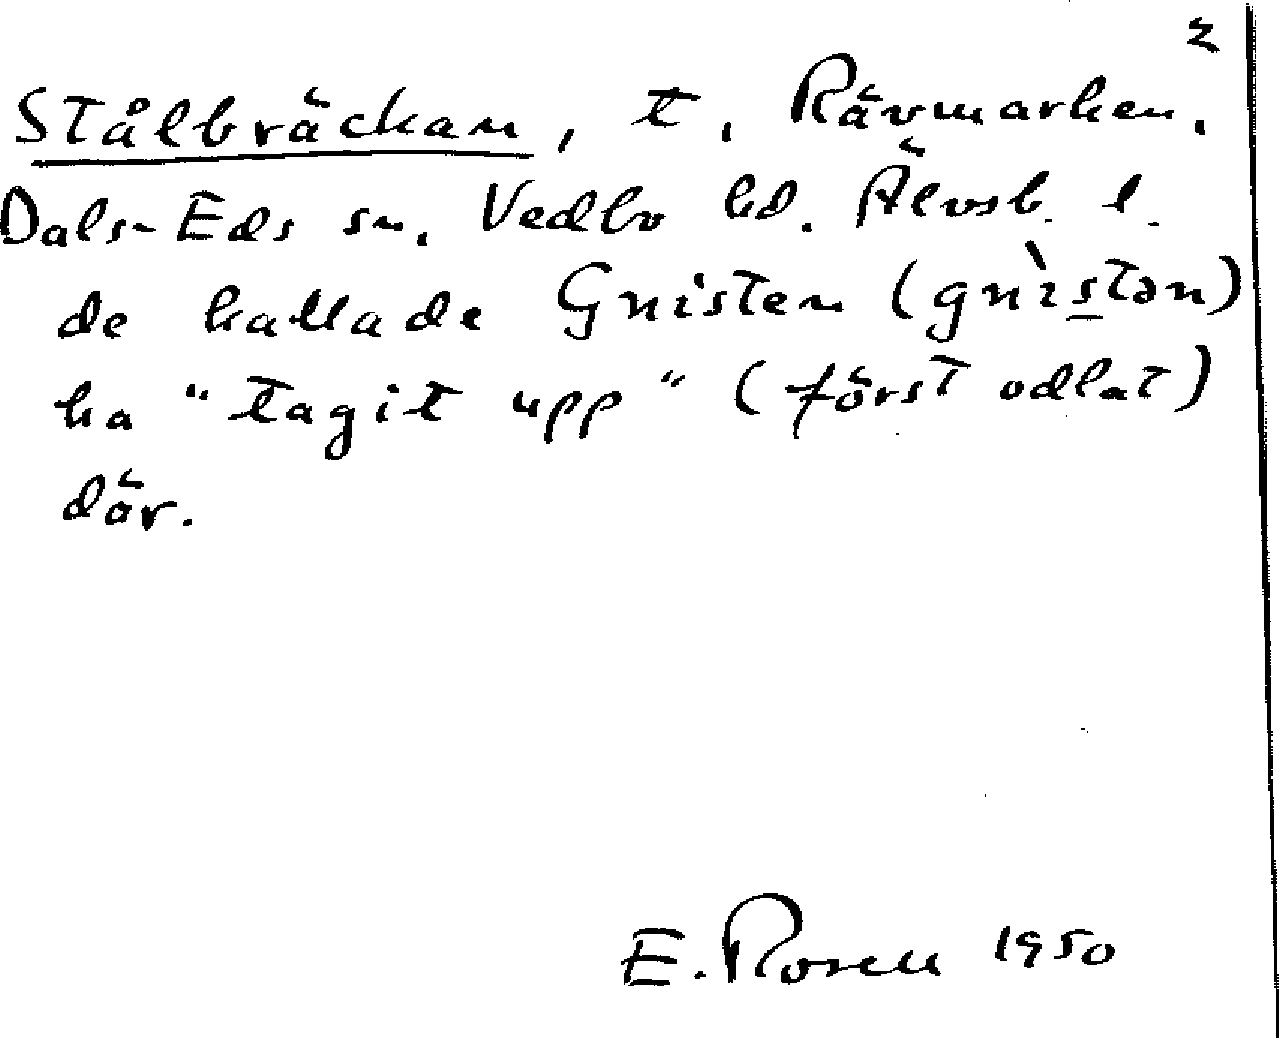 2
Stålbräckan, t. Rävmarken.
Dals-Eds sn. Vedbo hd. Älvsb. l.
de kallade Gnisten (gnìstən)
ha "tagit upp" (först odlat)
där.
E. Rosell 1950